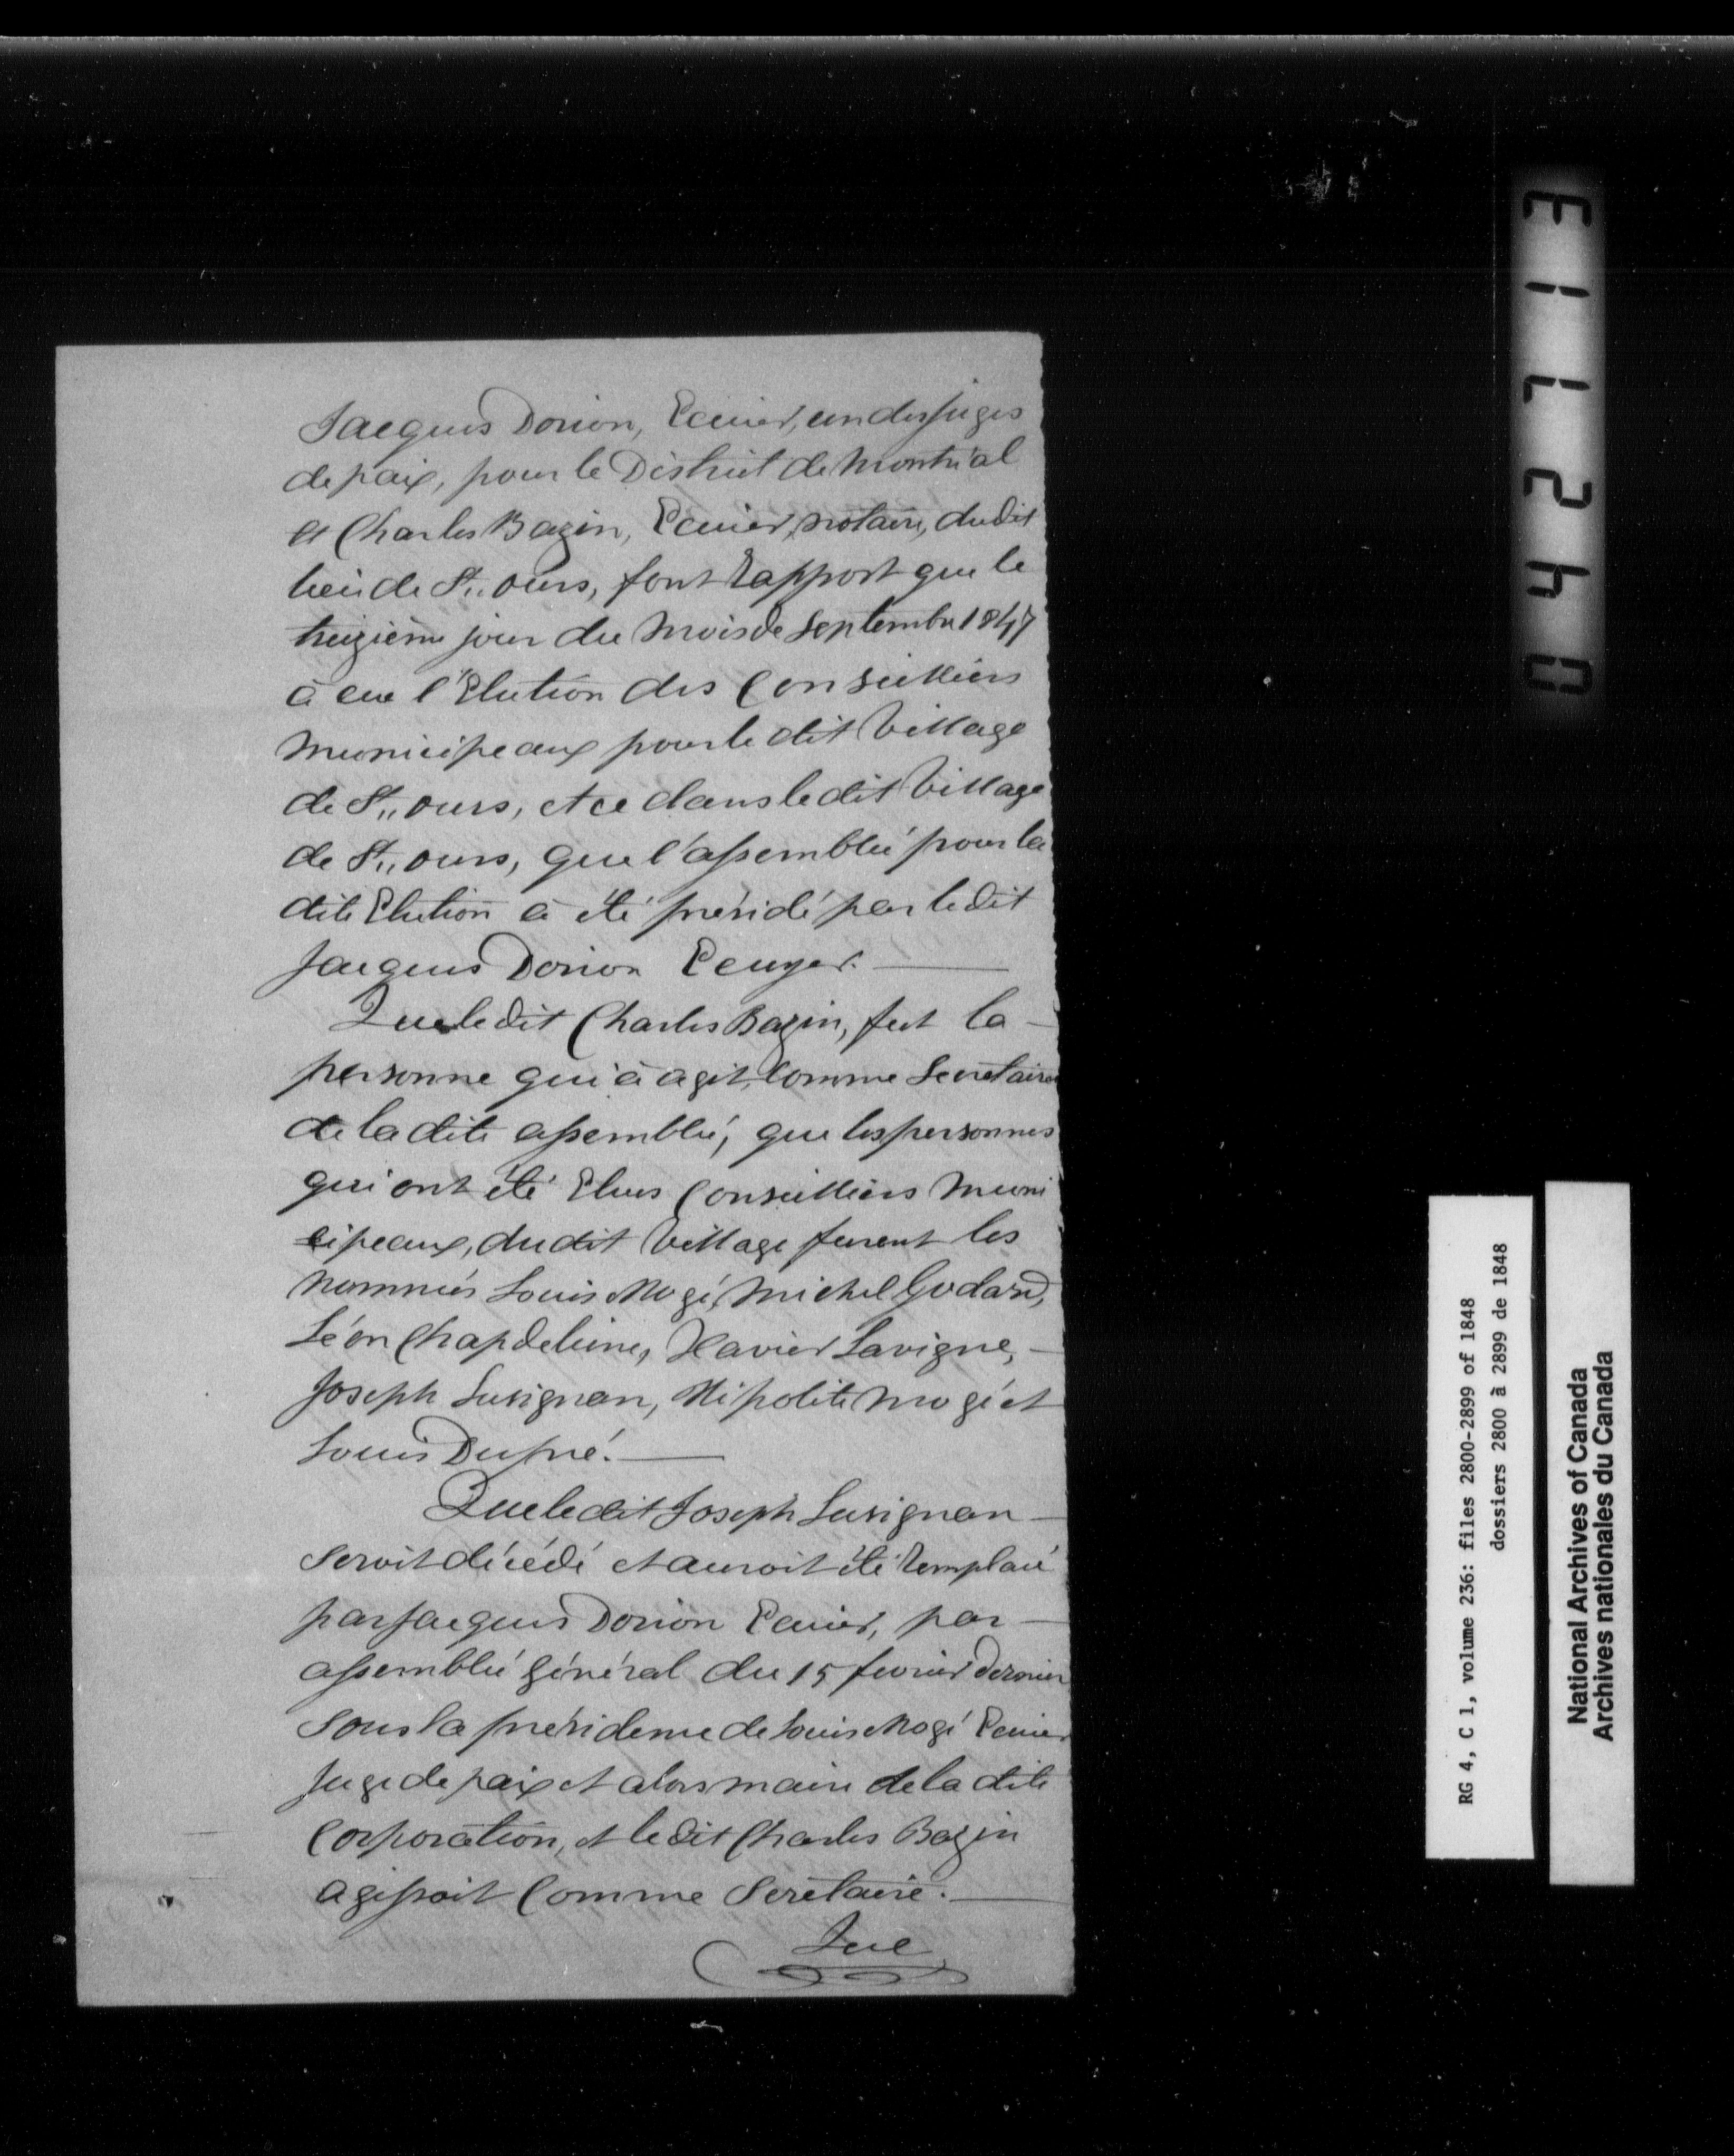 Jacques Dorion, Ecuier, un des juges
de paix, pour le District de Montréal
et Charles Bazin, Ecuier, notaire, du dit
lieu de St. Ours, font rapport que le
treizième jour du mois de Septembre 1847
à eue l'Election des Conseilliers
Municipeaux pour le dit Village
de St. ours, et ce dans le dit Village
de St. ours, que l'assemblée pour la
dite Election à été présidé par le dit
Jacques Dorion Ecuyer.
Que le dit Charles Bazin, fut la
personne qui à agit, comme Secrétaire
de la dite assemblée, que les personnes
qui ont été Elues Conseilliers Muni
cipeaux, du dit Village furent les
nommés Louis Mogé, Michel Godard,
Léon Chapdeleine, Xavier Lavigne,
Joseph Lusignan, Hipolite Mogé et
Louis Dupré.
Que le dit Joseph Lusignan
seroit décédé et auroit été remplacé
par Jacques Dorion Ecuier, par
assemblée général du 15 fevrier dernier
sous la présidence de Louis Mogé Ecuier
Juge de paix et alors maire de la dite
Corporation, et le dit Charles Bazin
agissoit Comme Secrétaire.
Que
0424713
RG 4, C 1, volume 236: files 2800-2899 of 1848
dossiers 2800 à 2899 de 1848
National Archives of Canada
Archives nationales du Canada